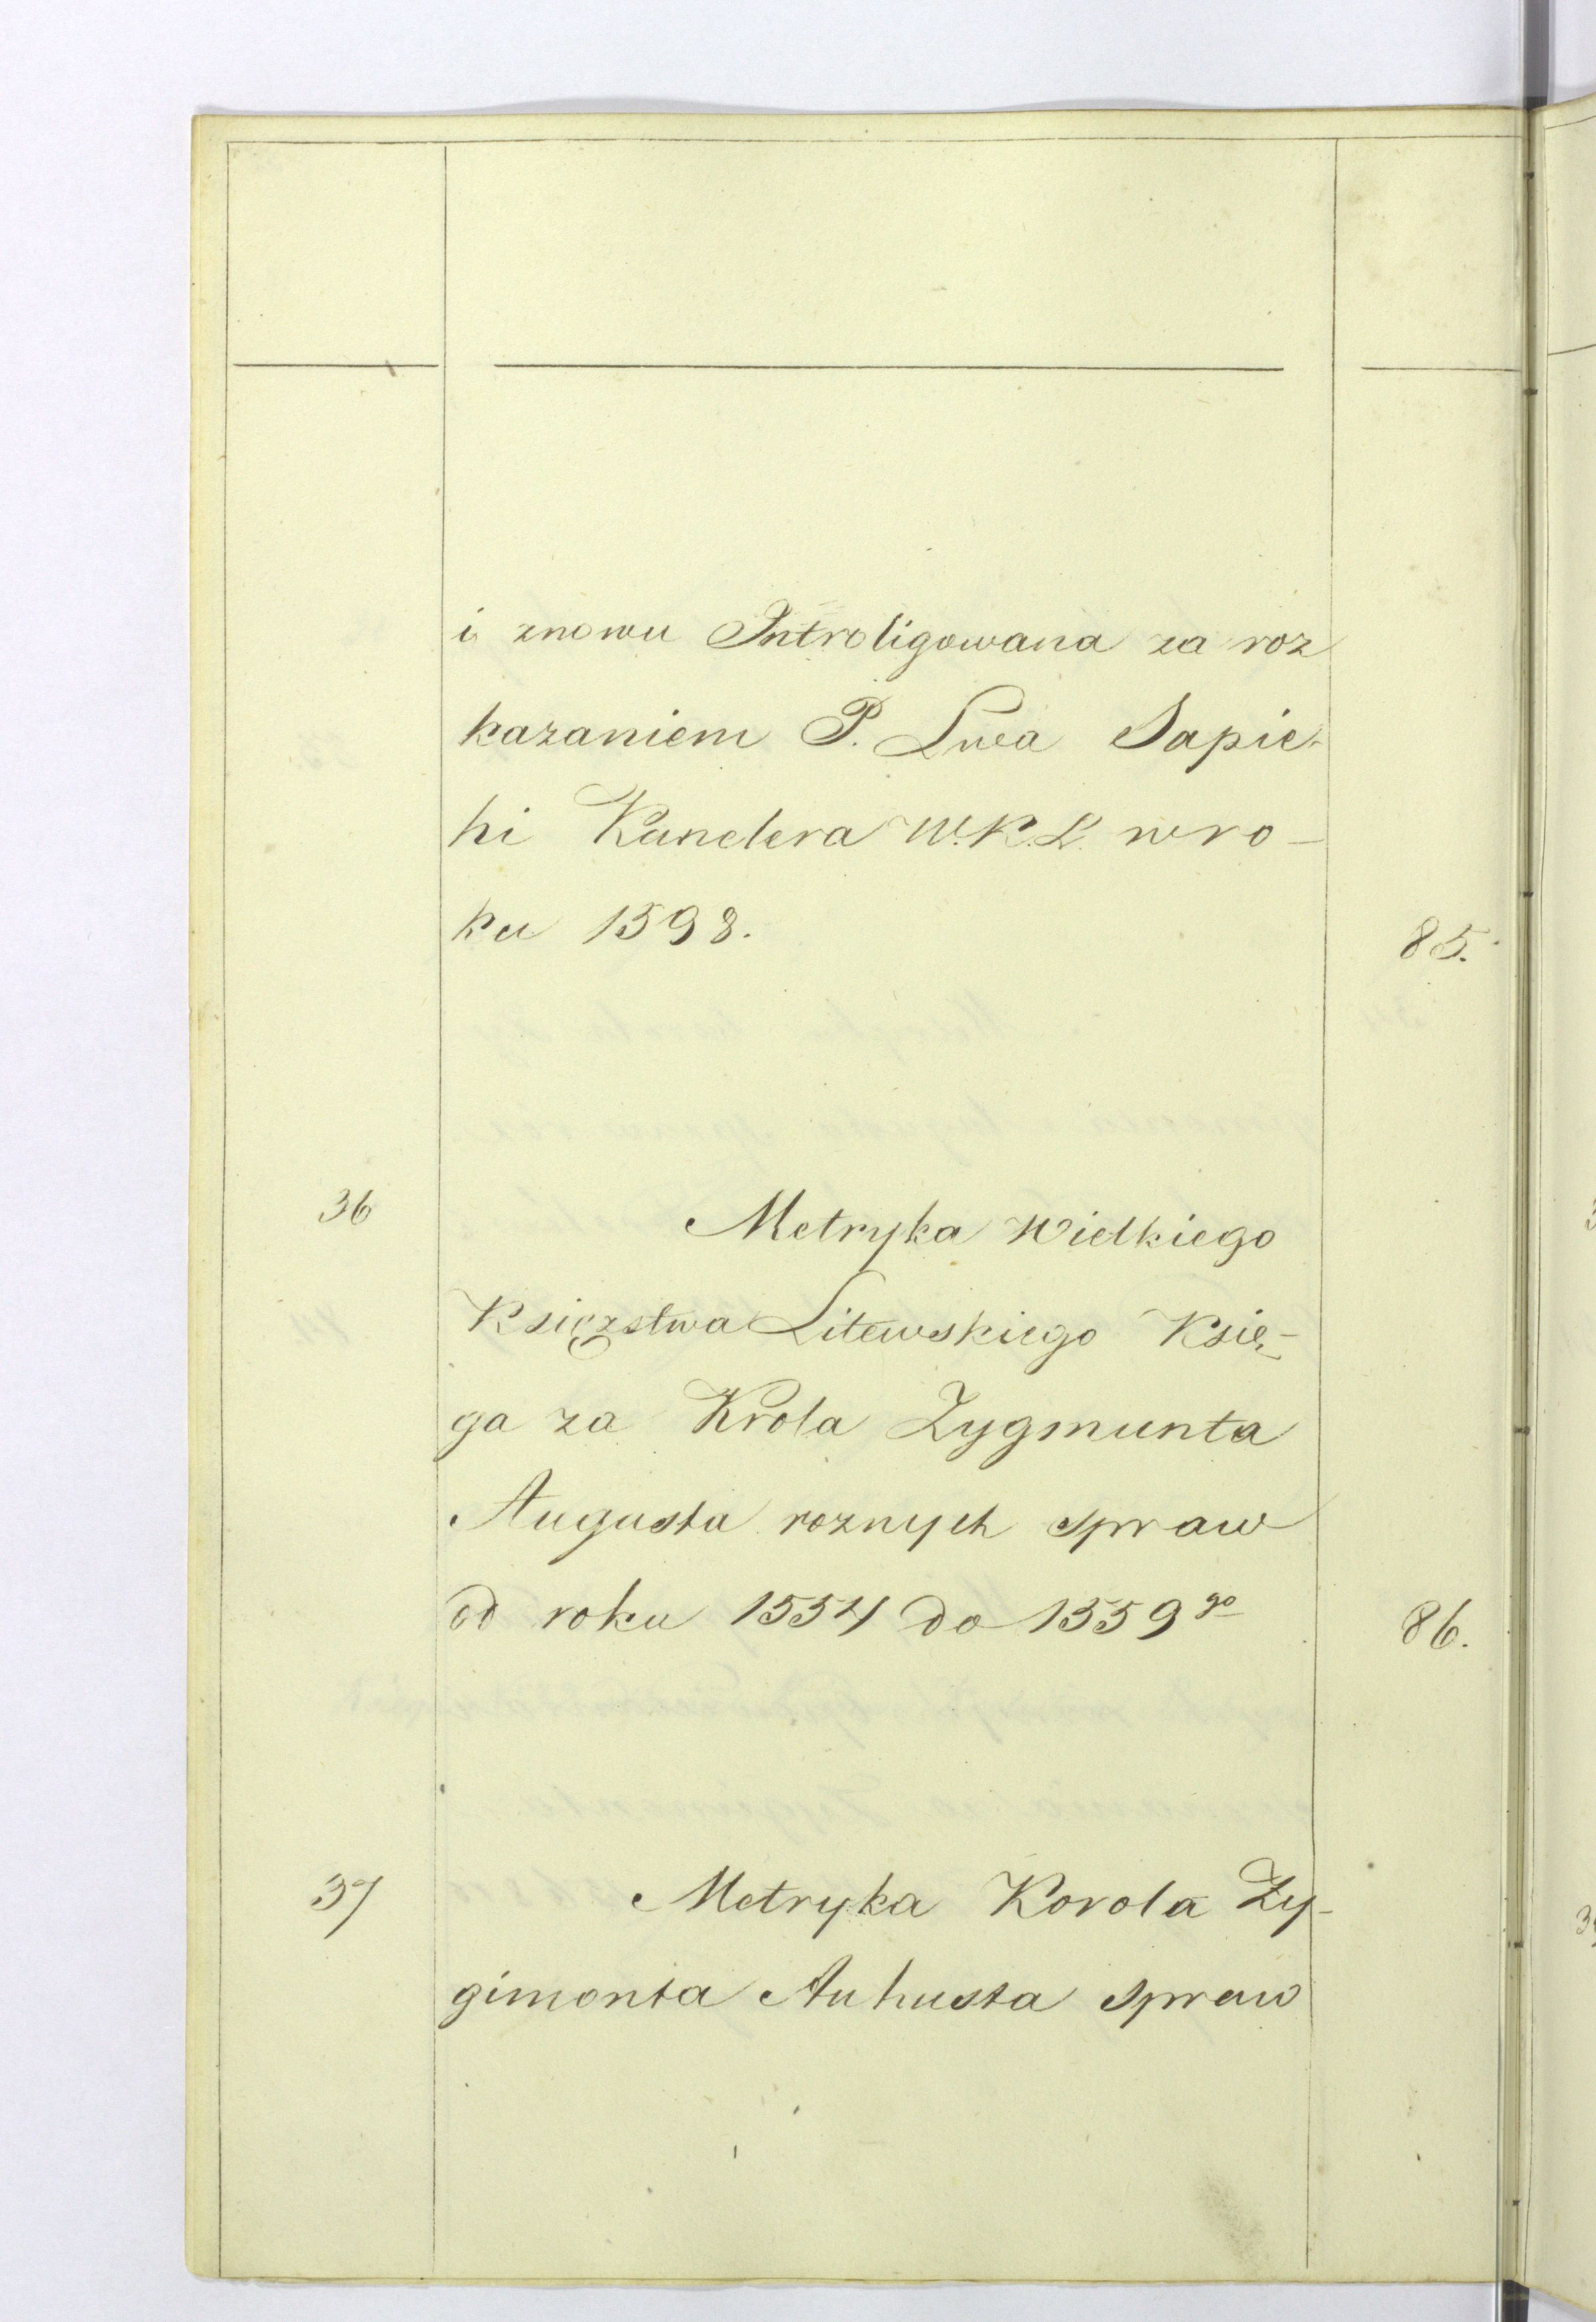 i znowu Introligowana za roz
kazaniem P. Lwa Sapie-
hi Kanclera W.K.L. w ro-
ku 1598.
85.
36
Metryka Wielkiego
Księzstwa Litewskiego Księ-
ga za Krola Zygmunta
Augusta roznych spraw
od roku 1554 do 1559go
86.
37
Metryka Korola Zy-
gimonta Auhusta spraw